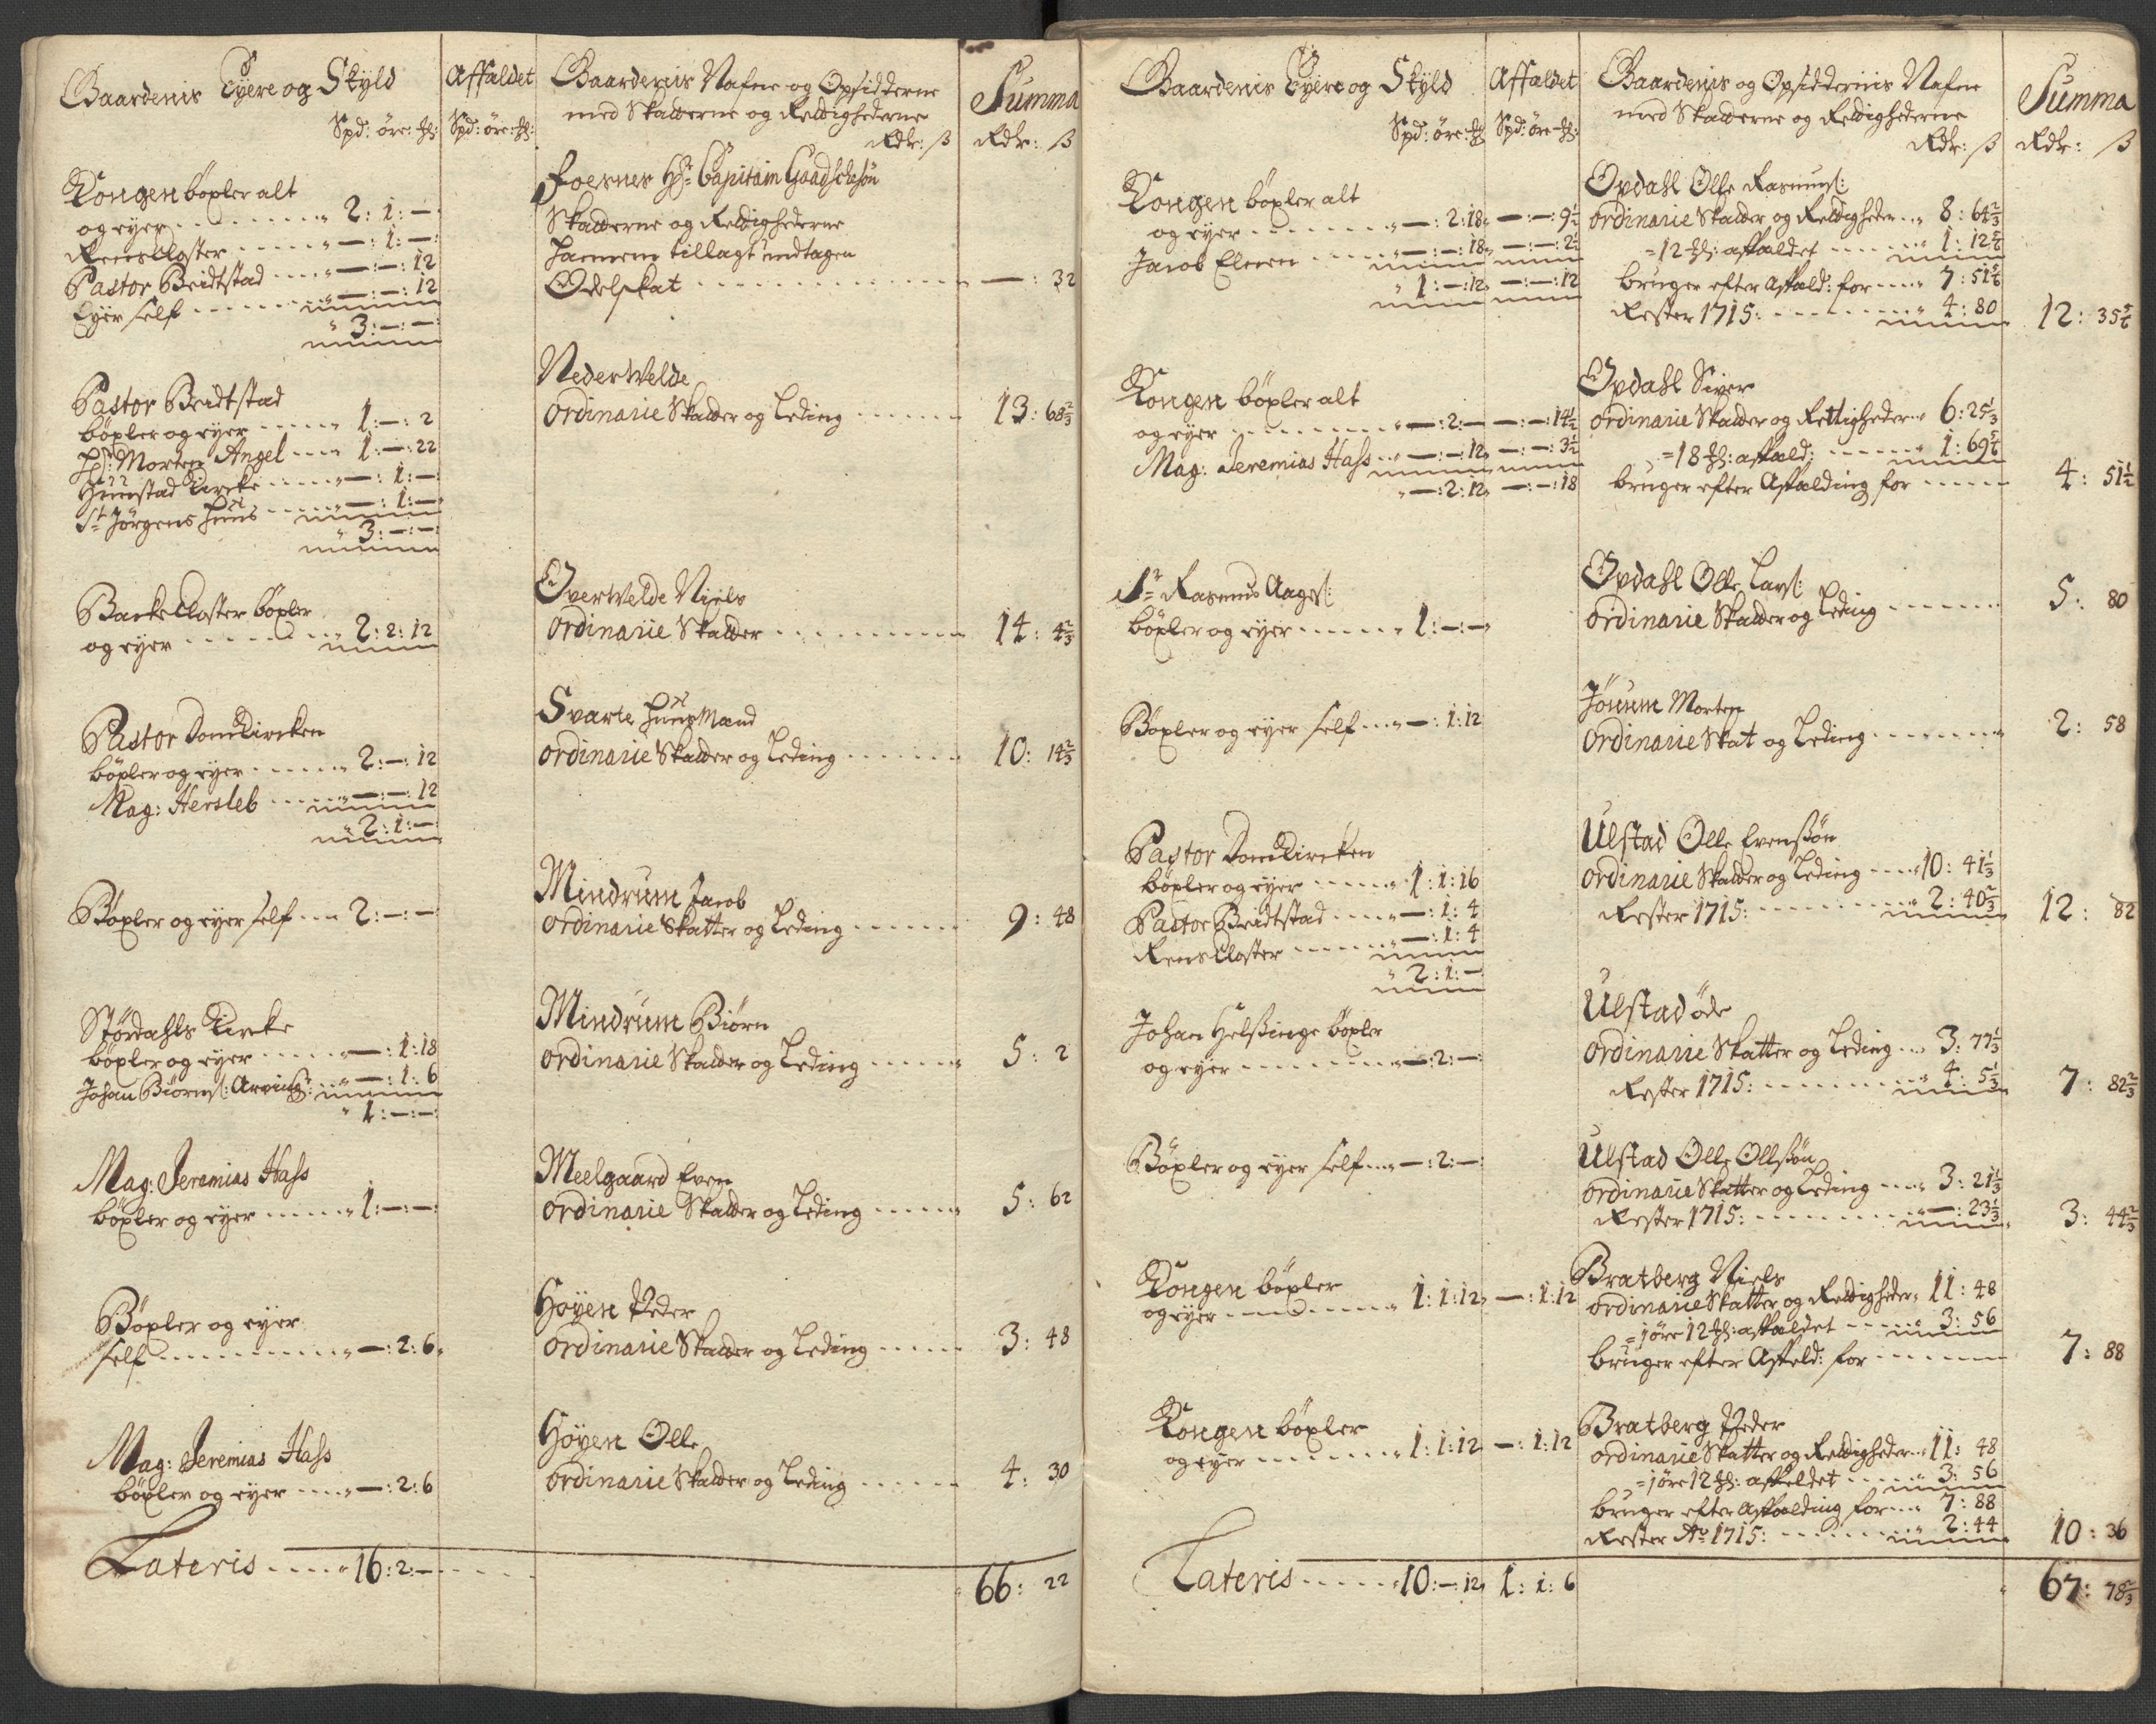 Gaardenis Eÿere og Skÿld
Spd: øre: ℔:
Affaldet
Spd: øre: ℔:
Gaardenis Nafne og Opsidderne
med Skatterne og Rettighederne
Rdr: ß
Summa
Rdr: ß
Kongen böxler alt
og eÿer 2: 1: —
Reinscloster —: 1: —
Pastor Beidtstad —: —: 12
Eÿer self —: —: 12
3: —: —
Foesnes Hr: Capitain
Skatterne og Rettighederne
hannem tillagt undtagen
Odelskat —: 32
Pastor Beidtstad
böxler og eÿer 1: —: 2
Hr: Morten Angel 1: —: 22
Hünnstad Kircke —: 1: —
St: Jörgens Huus —: 1: —
3: —: —
Neder Welde
Ordinarie Skatter og Leding 13: 68⅔
Backe Closter böxler
og eÿer 2: 2: 12
Over Welde Niels
Ordinarie Skatter 14: 4⅔
Pastor DomKircken
böxler og eÿer 2: —: 12
Mag: Hersleb —: —: 12
2: 1: —
Svarte Huus Mand
Ordinarie Skatter og Leding 10: 14⅔
Böxler og eÿer self 2: —: —
Mindrum Jacob
Ordinarie Skatter og Leding 9: 48
Størdahls Kircke
böxler og eÿer —: 1: 18
Johan Biörns: Arving: —: 1: 6
1: —: —
Mindrum Biörn
Ordinarie Skatter og Leding 5: 2
Mag: Jeremias Hass
böxler og eÿer 1: —: —
Meelgaard Even
Ordinarie Skatter og Leding 5: 62
Böxler og eÿer
self —: 2: 6
Hoÿen Peder
Ordinarie Skatter og Leding 3: 48
Mag: Jeremias Hass
böxler og eÿer —: 2: 6
Hoÿen Olle
Ordinarie Skatter og Leding 4: 30
Lateris 16: 2: —
66: 22
Gaardenis Eÿere og Skÿld
Spd: øre: ℔
Affaldet
Spd: øre: ℔:
Gaardenis og Opsiddernis Nafne
med Skatterne og Rettighederne
Rdr: ß
Summa
Rdr: ß
Kongen böxler alt
og eÿer —: 2: 18 —: —: 9½
Jacob —: —: 18 —: —: 2½
1: —: 12 —: —: 12
Opdahl Olle Rasmus:
Ordinarie Skatter og Rettigheder 8: 64⅔
= 12 ℔: affaldet 1: 12⅚
bruger efter Affald: for 7: 51⅚
Rester 1715: 4: 80
12: 35⅚
Kongen böxler alt
og eÿer —: 2: — —: —: 14½
Mag: Jeremias Hass —: —: 12 —: —: 3½
—: 2: 12 —: —: 18
Opdahl Siver
Ordinarie Skatter og Rettigheder 6: 25⅓
= 18 ℔: affald: 1: 69⅚
bruger efter Affalding for 4: 51½
Sr: Rasmus Aages:
böxler og eÿer 1: —: —
Opdahl Olle Lars:
Ordinarie Skatter og Leding 5: 80
Böxler og eÿer self —: 1: 12
Jöuum Morten
Ordinarie Skat og Leding 2: 58
Pastor DomKircken
böxler og eÿer 1: 1: 16
Pastor Beidtstad —: 1: 4
Reins Closter —: 1: 4
2: 1: —
Ulstad Olle Evensøn
Ordinarie Skatter og Leding 10: 41⅓
Rester 1715: 2: 40⅔
12: 82
Johan Helsinge böxler
og eÿer —: 2: —
Ulstad öde
Ordinarie Skatter og Leding 3: 77⅓
Rester 1715: 4: 5⅓
7: 82⅔
Böxler og eÿer self —: 2: —
Ulstad Olle Ollssøn
Ordinarie Skatter og Leding 3: 21⅓
Rester 1715: —: 23⅓
3: 44⅔
Kongen böxler
og eÿer 1: 1: 12 —: 1: 12
Bratberg Niels
Ordinarie Skatter og Rettigheder 11: 48
= 1 øre 12 ℔: affaldet 3: 56
bruger efter Affald: for 7: 88
Kongen böxler
og eÿer 1: 1: 12 —: 1: 12
Bratberg Peder
Ordinarie Skatter og Rettigheder 11: 48
= 1 øre 12 ℔: affaldet 3: 56
bruger efter Affalding for 7: 88
Rester Ao 1715: 2: 44
10: 36
Lateris 10: —: 12 1: 1: 6
67: 78⅔